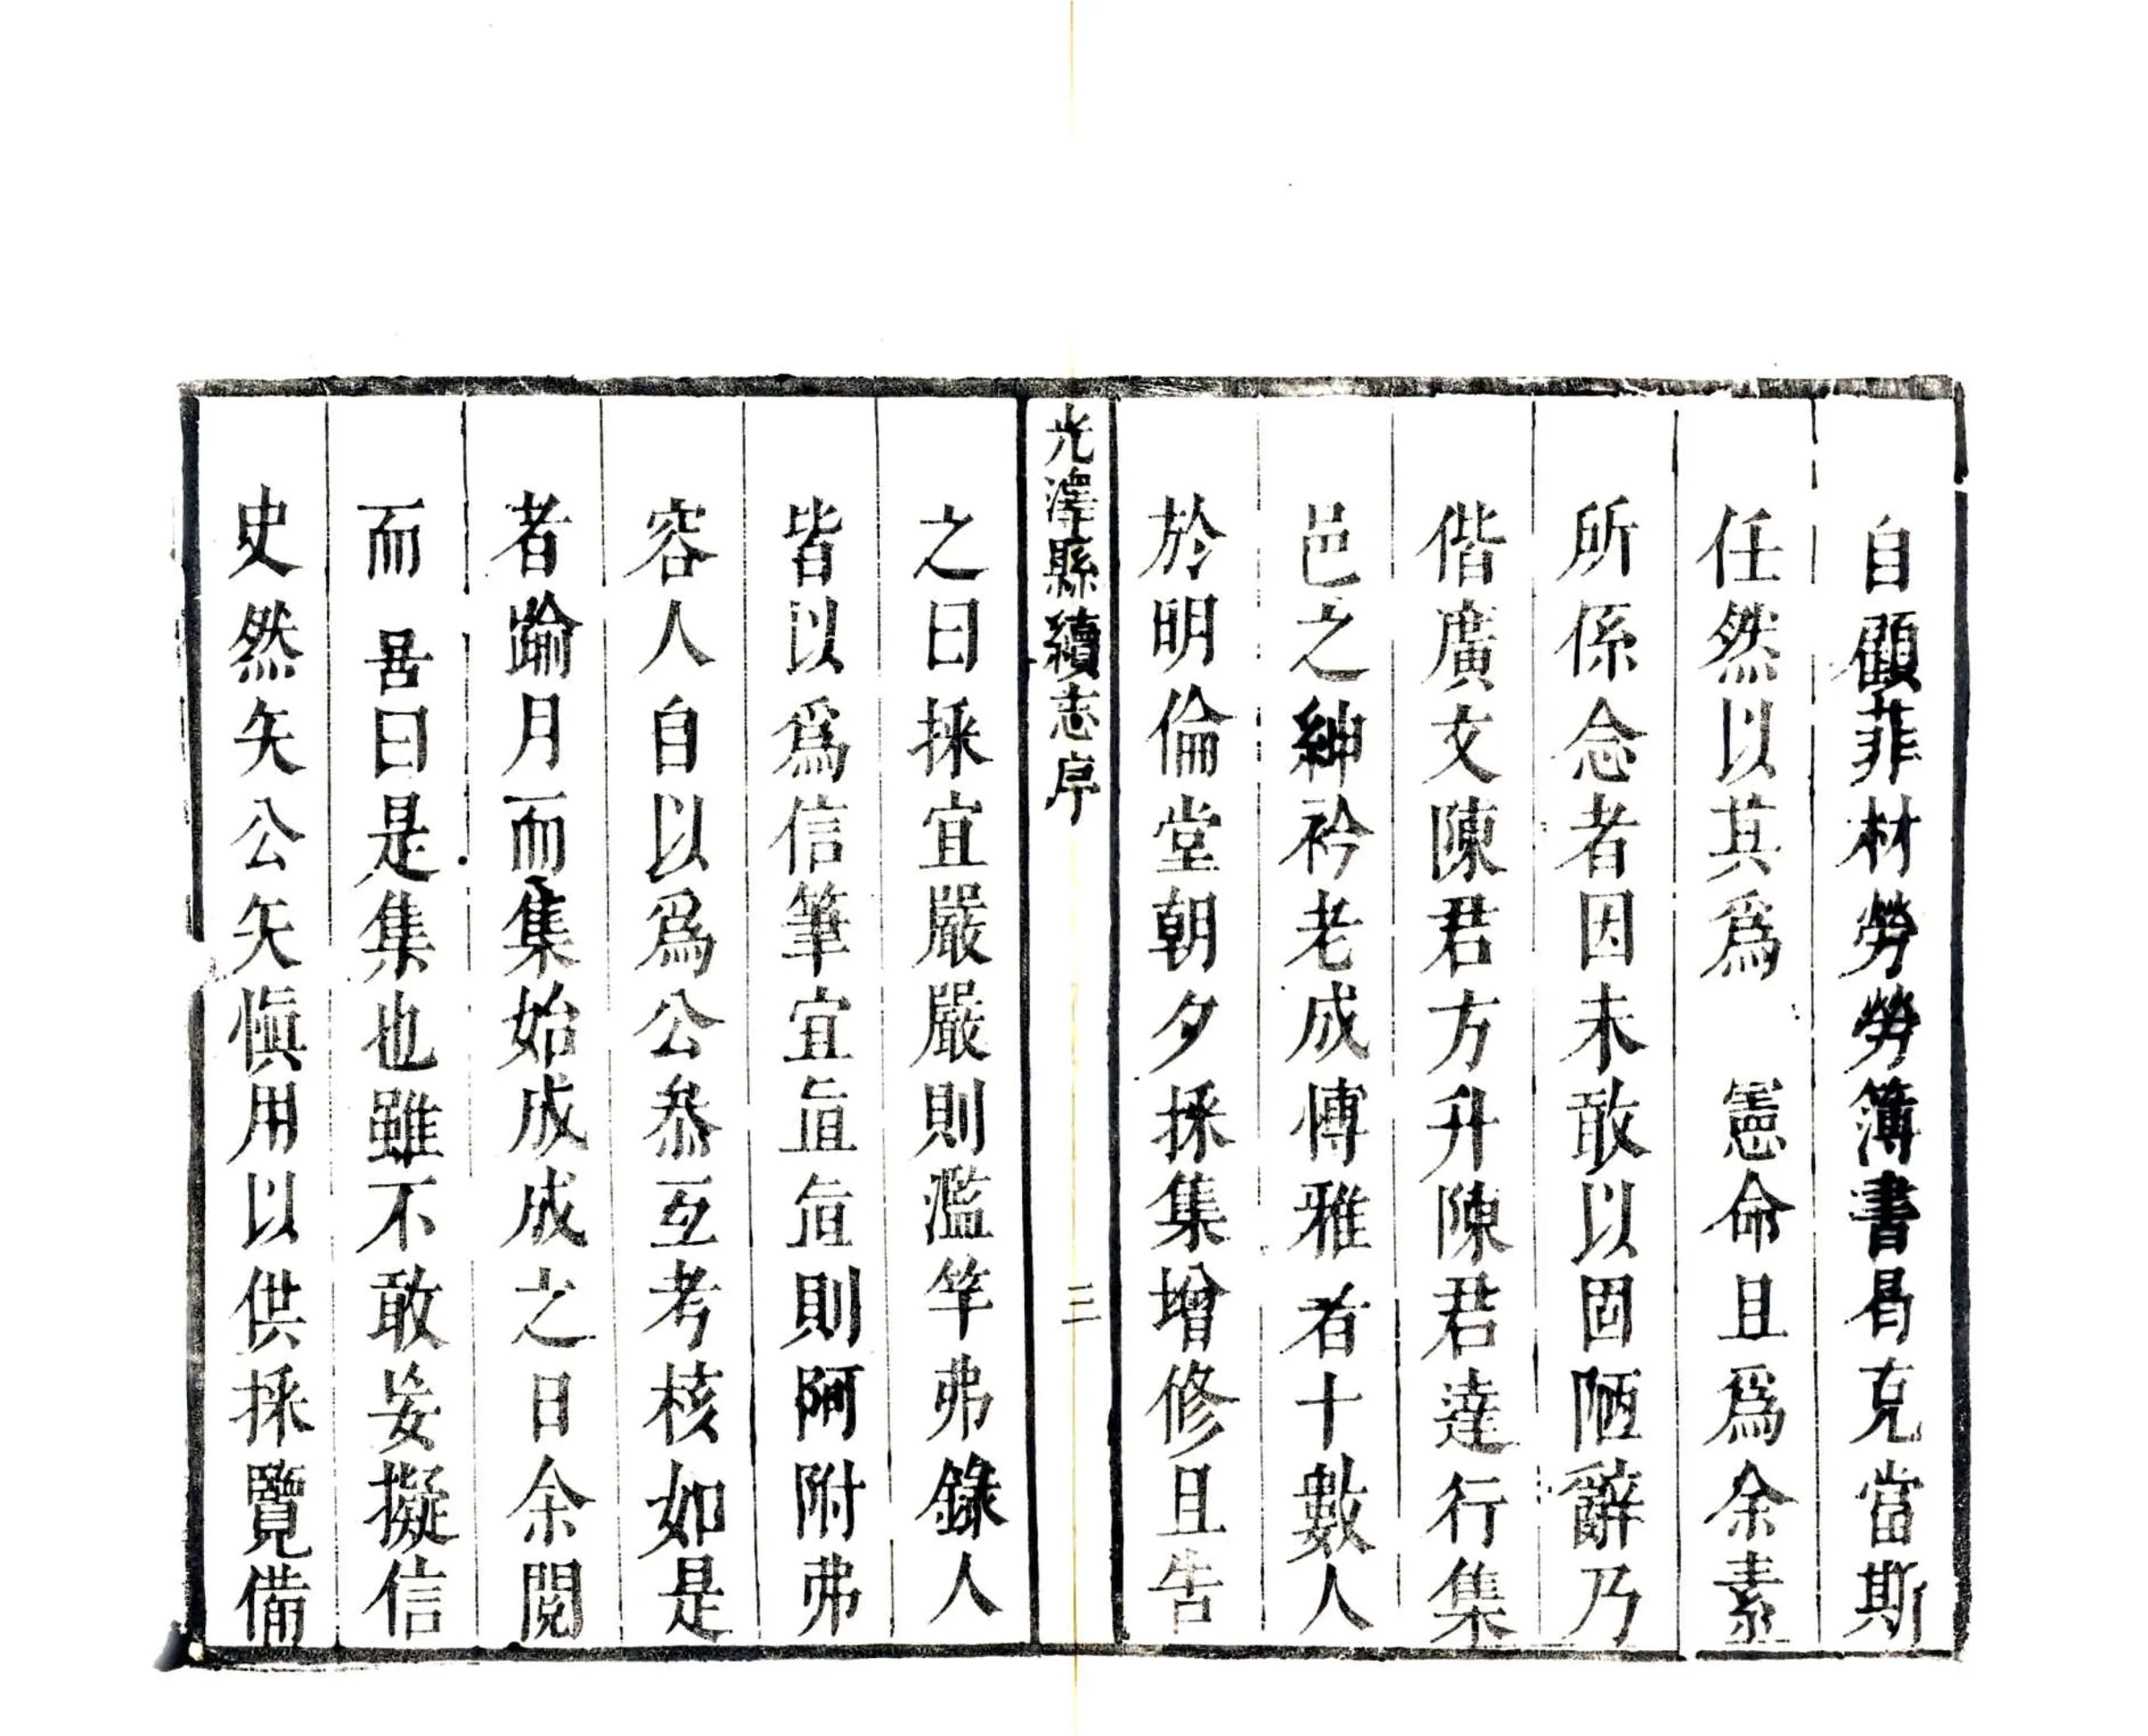 自顧菲材勞勞簿書曷克當斯
任然以其爲　憲命且爲余素
所係念者因未敢以固陋辭乃
偕廣文陳君方升陳君達行集
邑之紳衿老成慱雅者十數人
於明倫堂朝夕採集增修且告
光澤縣續志序
三
之曰採宜嚴嚴則濫竽弗錄人
皆以爲信筆宜直直則阿附弗
容人自以爲公叅互考核如是
者踰月而集始成成之日余閱
而　曰是集也雖不敢妄擬信
史然矢公矢慎用以供採覽備